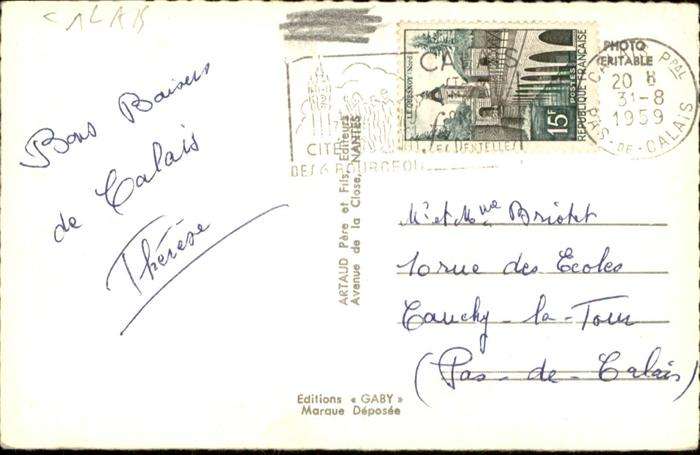 CALAIS
Bons Baisers
de Calais
Thérèse
ARTAUD Père et Fils, Editeurs
Avenue de la Close, NANTES
Editions « GABY »
Marque Déposée
PHOTO
VÉRITABLE
LE QUESNOY (Nord)
15F
POSTES
REPUBLIQUE FRANÇAISE
CALAIS
CITE DES DENTELLES
DES 6 BOURGEOIS
CALAIS PPAL
20 H
31-8
1959
PAS-DE-CALAIS
Mr et Mme Briotet
10 rue des Ecoles
Cauchy-la-Tour
(Pas-de-Calais)